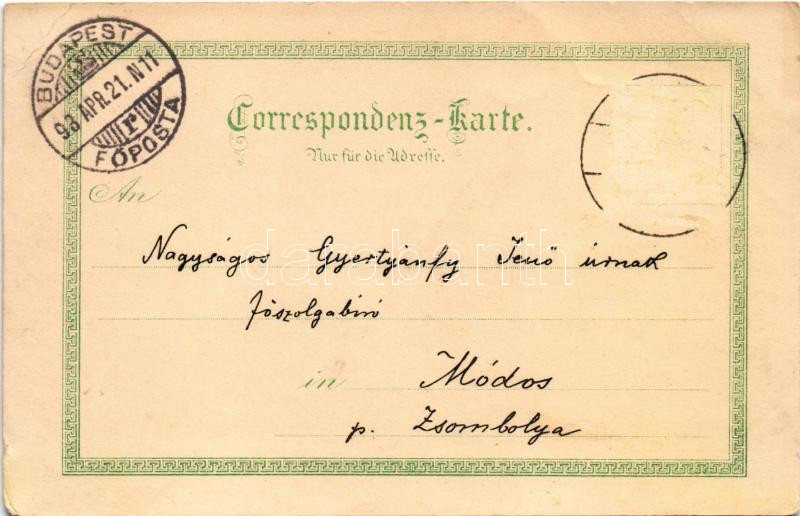 BUDAPEST
98 APR. 21. N 11
r
FŐPOSTA
Correspondenz-Karte.
Nur für die Adresse.
An
Nagyságos Gyertyánfy Jenő úrnak
főszolgabíró
in Módos
p. Zsombolya
darabanth